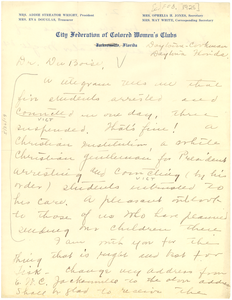 [1925]
MRS. ANNIE OPERATOR WRIGHT, President
MRS. EVA DOUGLAS, President
MRS. OPHELIA B. JONES, Secretary
MRS. RAY WHITE, Corresponding Secretary
City Federation of Colored Women's Clubs
Jacksonville, Florida
Daytona, Florida
Dr. Du Bois,
A telegram tells me that
five students arrested and
committed in one day, three
suspended. That's fine! a
Christian Institution, a white
Christian gentleman for President
arresting and committing (by his
order) students intrusted to
his care. A pleasant outlook
to those of us who has planned
sending our children there
I am with you for the
thing that is right and not for
Fisk. Change my address from
Jacksonville to the above address
glad to receive the